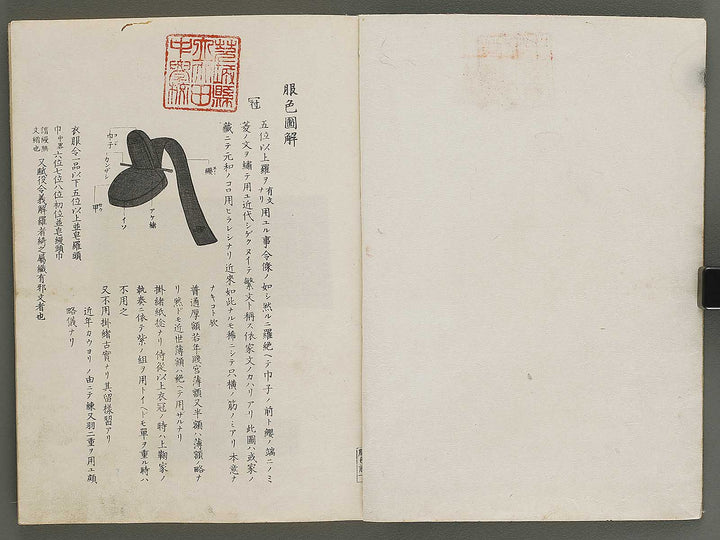 服色圖解
冠
五位以上羅ヲ有文用ユル事令條ノ如シ然ルニ羅絶ヘテ巾子ノ前ト纓ノ端ニノミ
菱ノ文ヲ繍テ用ユ近代シゲクヌイテ繁文ト稱ス依家文ノカハリアリ此圖ハ或家ノ
藏ニテ元和ノコロ用ヒラレシナリ近來如此ナルモ稀ニシテ只横ノ筋ノミアリ本意ナ
ナキコト欤
普通厚額若年殿官薄額又半額ハ薄額ノ略ナ
リ然ドモ近世薄額ハ絶ヘテ用ザルナリ
掛緒紙捻ナリ侍從以上衣冠ノ時ハ上鞠家ノ
執奏ニ依テ紫ノ組ヲ用トイヘドモ單ヲ重ル時ハ
不用之
又不用掛緒古實ナリ其留樣習アリ
近年カウヨリノ由ニテ練又羽二重ヲ用ユ頗
略儀ナリ
纓
巾子
カンザシ
アケ緒
イソ
甲
衣服令一品以下五位以上並皂羅頭
巾 六位七位八位初位並皂縵頭巾
謂縵無文繒也 又賦役令義解羅者綺之屬織有邪文者也